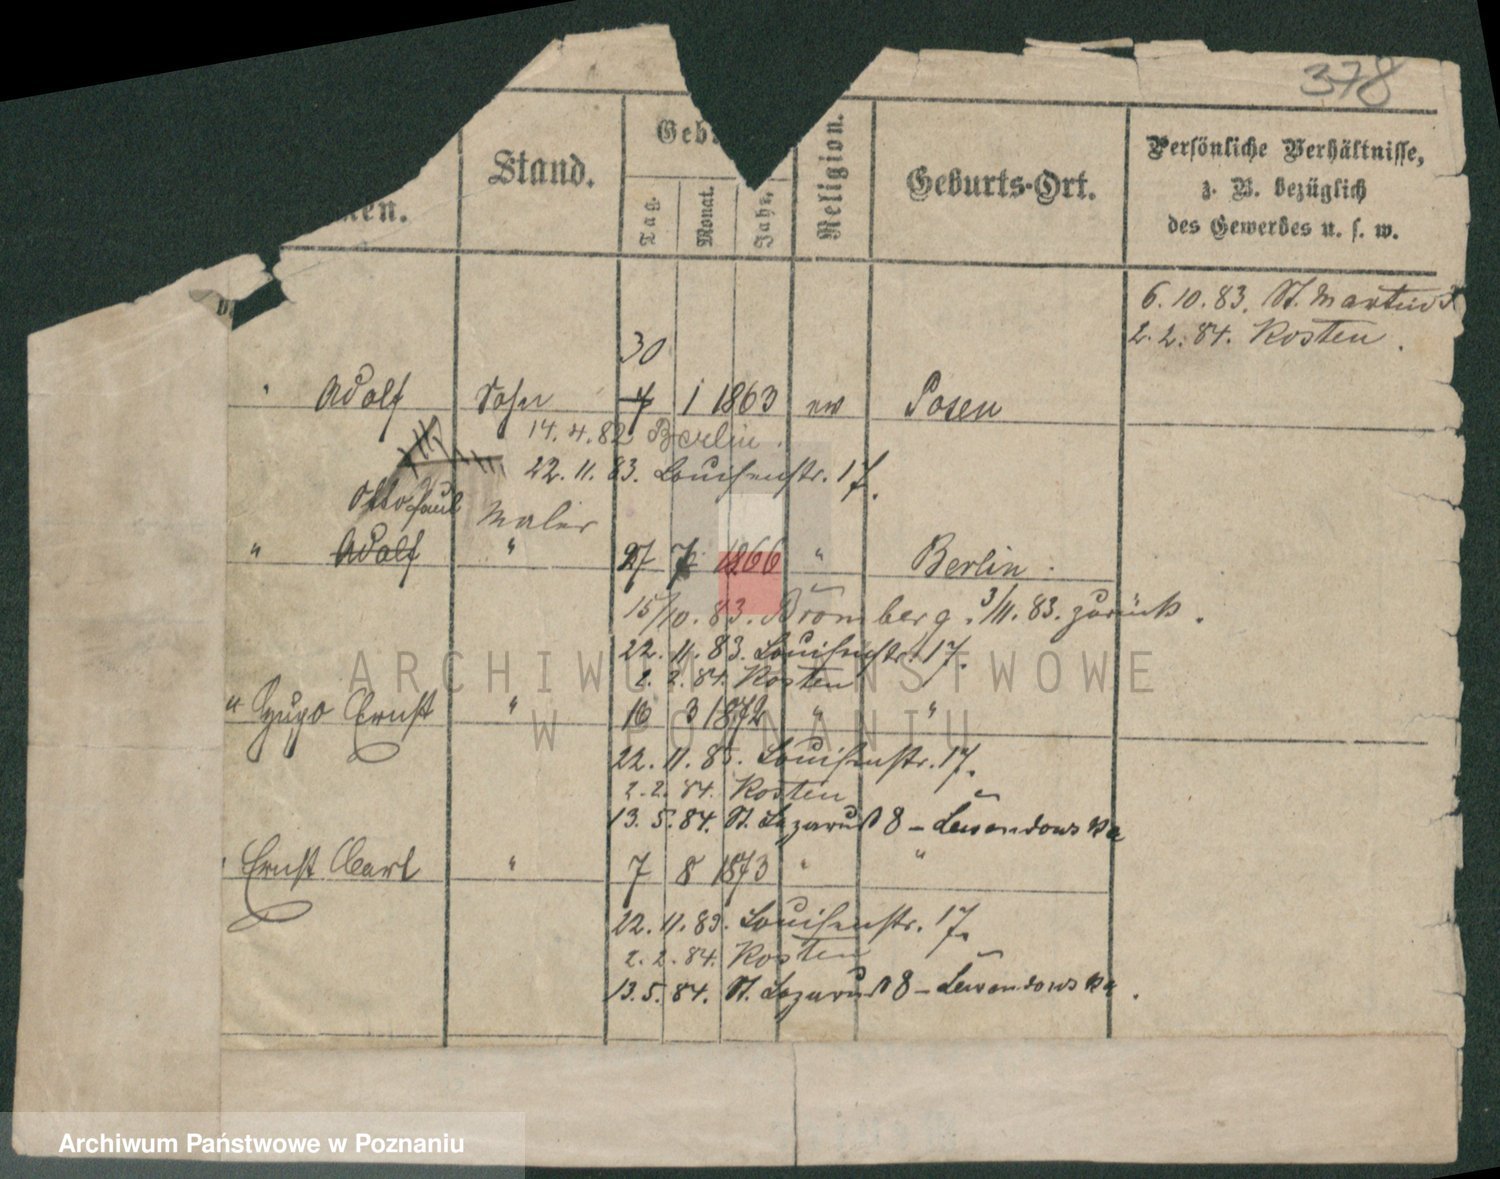 378
Stand.
Geb
Tag.
Monat.
Jahr.
Religion.
Geburts-Ort.
Persönliche Verhältnisse,
z. B. bezüglich
des Gewerbes u. s. w.
men.
6.10.83. St. Martin
2.2.84. Kosten.
30
Adolf Sohn 7 1 1863 ev Posen
14.4.82 Berlin.
22.11.83. Louisenstr. 17.
Otto Paul Maler
" Adolf " 27 7 1866 " Berlin.
15/10.83. Bromberg. 3/11.83. zurück.
22.11.83. Louisenstr. 17.
2.2.84. Kosten
" Hugo Ernst " 16 3 1872 " "
22.11.83. Louisenstr. 17.
2.2.84. Kosten
13.5.84. St. Lazarus 8 – Lewandowska
Ernst Carl " 7 8 1873 " "
22.11.83. Louisenstr. 17.
2.2.84. Kosten
13.5.84. St. Lazarus 8 – Lewandowska.
ARCHIWUM PAŃSTWOWE
W POZNANIU
Archiwum Państwowe w Poznaniu